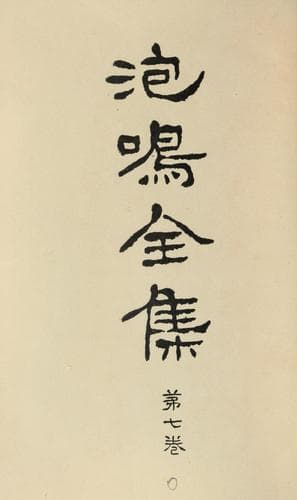 泡鳴全集
第七巻